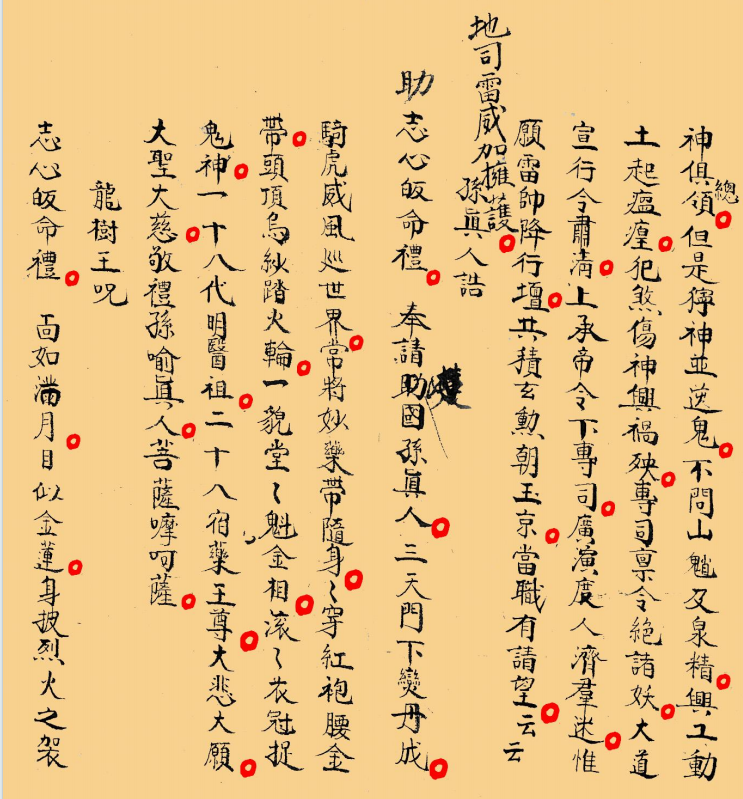 神俱領總但是獰神並送鬼不問山魈及泉精興工動
土起瘟㾮犯煞傷神興禍殃專司禀令絕諸妖大道
宣行令肅清上承帝令下專司廣演度人濟羣迷惟
願雷帥降行壇共積玄勲朝玉京當職有請望云云
地司雷威加擁護
孫眞人誥
助志心皈命禮 奉請助國孫眞人三天門下變丹成
騎虎威風巡世界常將妙藥帶隨身〻穿紅袍腰金
帶頭頂烏紗踏火輪一貌堂〻魁金相滚〻衣冠捉
鬼神一十八代明醫祖二十八宿藥王尊大悲大願
大聖大慈敬禮孫喻眞人菩薩嚤呵薩
龍樹王呪
志心皈命禮 面如滿月目似金蓮身披烈火之袈